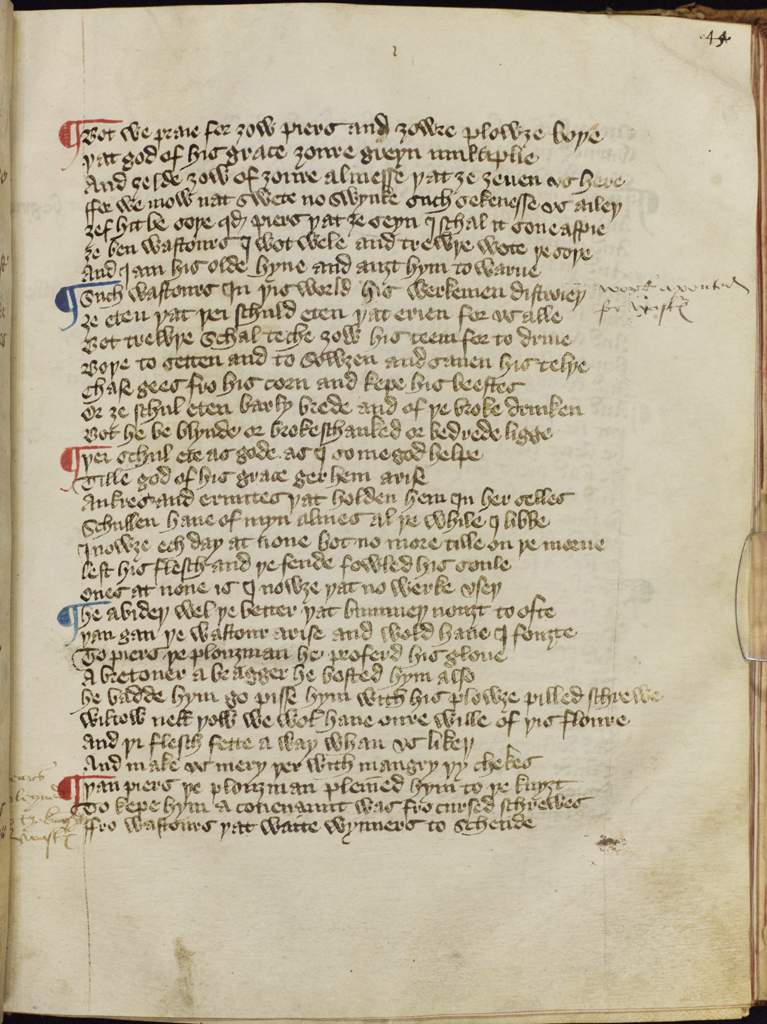 44
¶ Bot we praie for ȝow piers and ȝowre plowȝe boþe
þat god of his grace ȝoure greyn multiplie
And ȝelde ȝow of ȝoure almesse þat ȝe ȝeuen vs here
ffor we mow nat swete no swynke such sekenesse vs aileþ
ȝef hit be soþe qd piers þat ȝe seyn I schal it sone aspie
ȝe ben wastours I wot wele and trewþe wote þe soþe
And I am his olde hyne and auȝt hym to warne
¶ Such wastours In þis world his werkemen distrueþ
ȝe eten þat þei schuld eten þat erien for vs alle
Bot trewþe schal teche ȝow his teem for to driue
Boþe to setten and to sowȝen and sauen his telþe
Chase gees fro his corn and kepe his beestes
Or ȝe schul eten barly brede and of þe broke drinken
Bot he be blynde or brokeschanked or bedrede ligge
¶ þei schul ete as gode as I so me god helpe
Tille god of his grace ger hem arise
Ankres and ermites þat holden hem In her selles
Schullen haue of myn almes al þe while I libbe
Inowȝe ech day at none bot no more tille on þe morue
lest his flesch and þe fende fowled his soule
ones at none is I nowȝe þat no werke vseþ
¶ he abideþ wel þe better þat bummeþ nouȝt to ofte
þan gan þe wastour arise and wold haue I fouȝte
To piers þe plouȝman he proferd his gloue
A bretoner a bragger he bosted hym also
he badde hym go pisse hym with his plowȝe pilled schrewe
wiltow nelt þow we wol haue oure wille of þis floure
And þi flesch fette a way whan vs likeþ
And make vs mery þer with maugry þy chekes
¶ þan piers þe plouȝman pleined hym to þe knyȝt
To kepe hym a couenaunt was fro cursed schrewes
ffro wastours þat waite wynners to schende